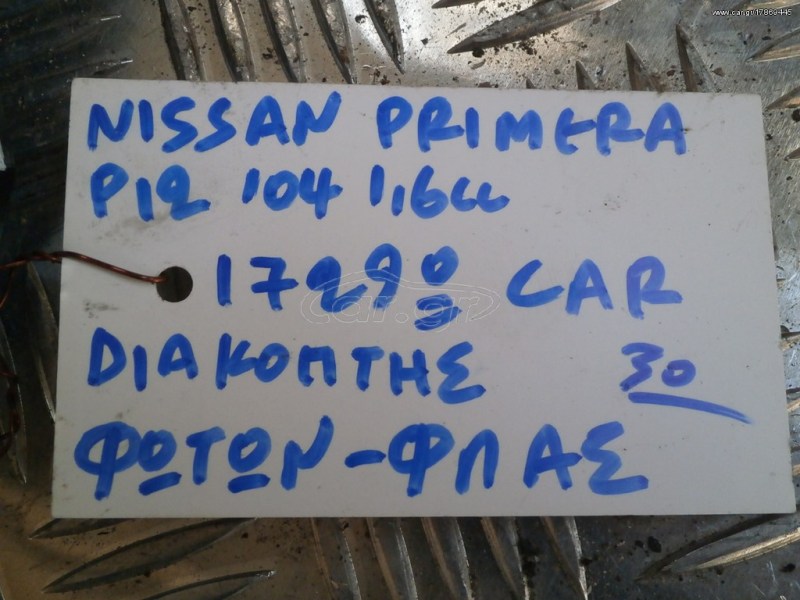 www.car.gr/17860445
NISSAN PRIMERA
P12 104 1,6cc
17290 CAR
car.gr
DΙΑΚΟΠΤΗΣ 30
ΦΩΤΩΝ-ΦΠΑΣ